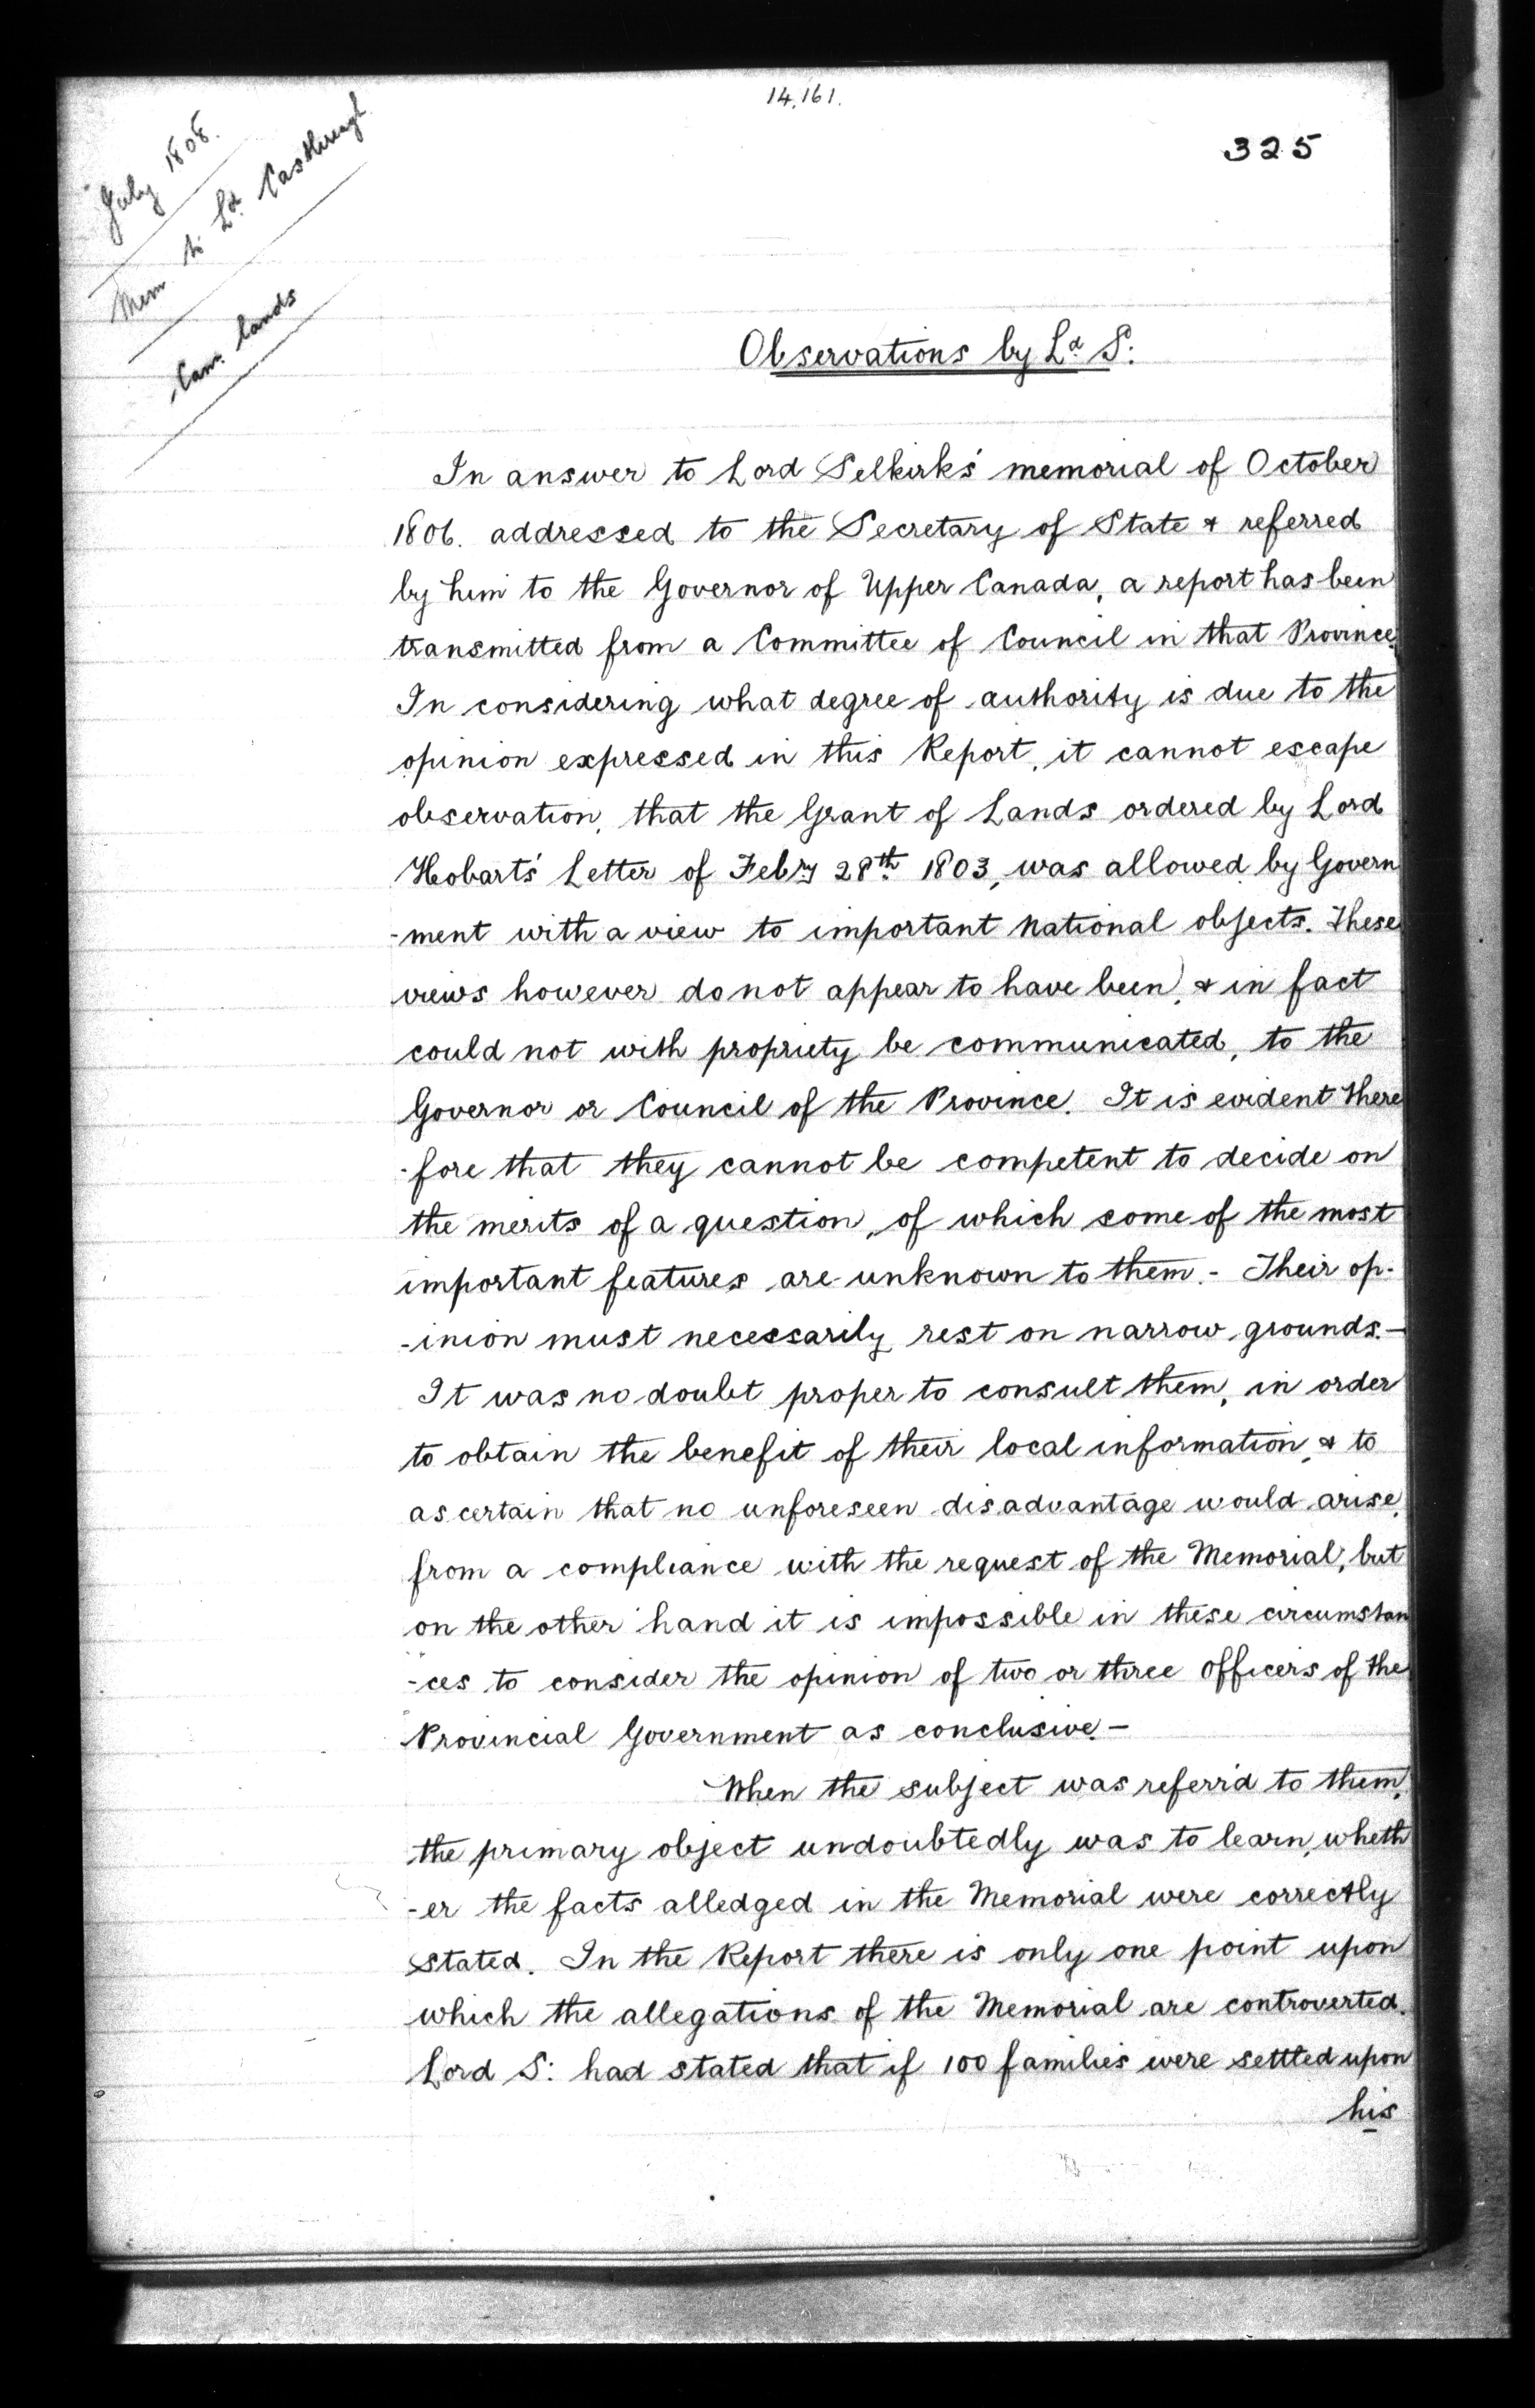 14,161.
325
July 1808.
Mem to Ld. Castlereagh
Can. lands
Observations by Ld. S:
In answer to Lord Selkirk's memorial of October
1806. addressed to the Secretary of State & referred
by him to the Governor of Upper Canada, a report has been
transmitted from a Committee of Council in that Province.
In considering what degree of authority is due to the
opinion expressed in this Report, it cannot escape
observation, that the Grant of Lands ordered by Lord
Hobart's Letter of Febry 28th. 1803, was allowed by Govern
-ment with a view to important national objects. These
views however do not appear to have been, & in fact
could not with propriety be communicated, to the
Governor or Council of the Province. It is evident there
-fore that they cannot be competent to decide on
the merits of a question, of which some of the most
important features are unknown to them. - Their op-
-inion must necessarily rest on narrow grounds. -
It was no doubt proper to consult them, in order
to obtain the benefit of their local information, & to
ascertain that no unforeseen disadvantage would arise,
from a compliance with the request of the Memorial, but
on the other hand it is impossible in these circumstan
-ces to consider the opinion of two or three Officers of the
Provincial Government as conclusive. -
When the subject was referr'd to them,
the primary object undoubtedly was to learn, wheth
-er the facts alledged in the Memorial were correctly
stated. In the Report there is only one point upon
which the allegations of the Memorial are controverted.
Lord S: had stated that if 100 families were settled upon
his